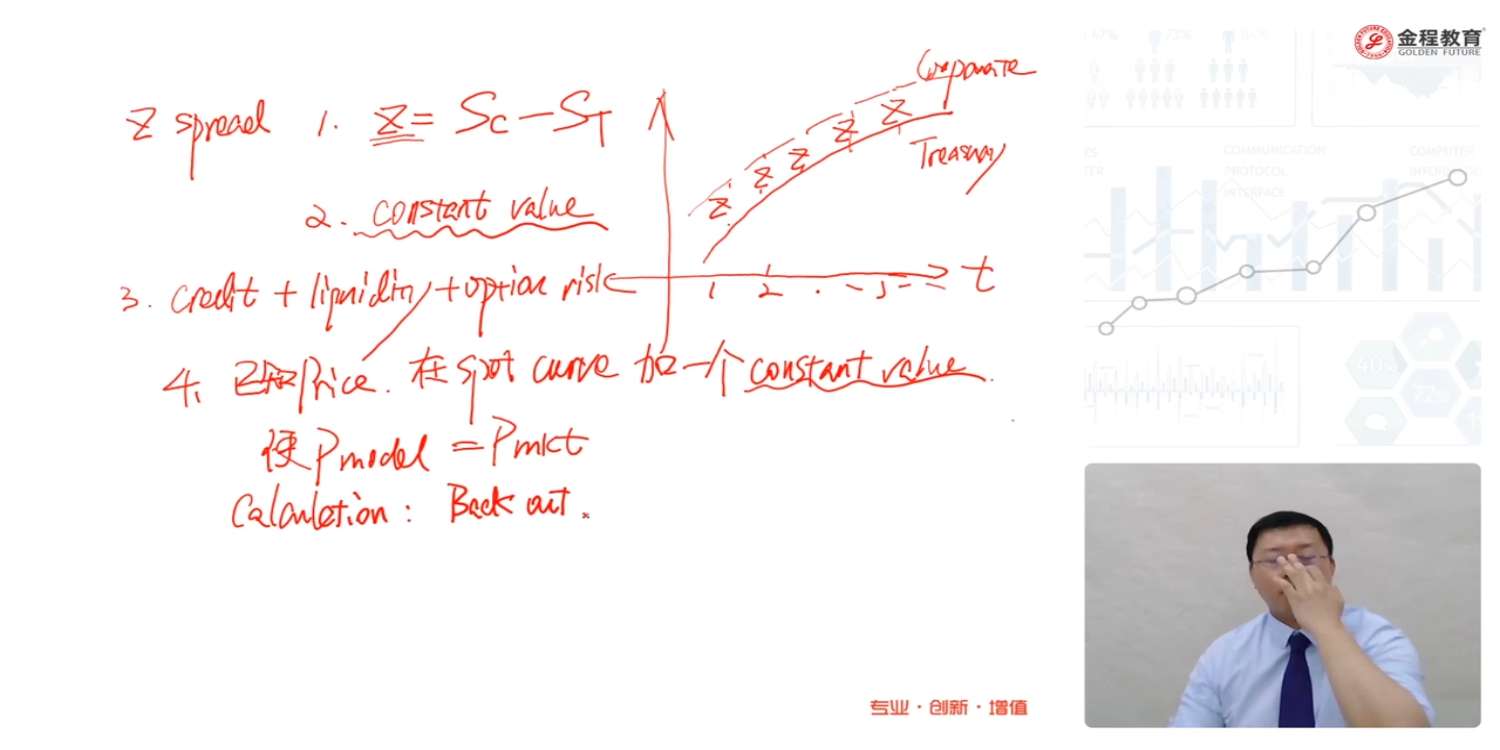 金程教育
GOLDEN FUTURE
Z spread 1. Z = Sc - ST
Corporate
Treasury
Z Z Z Z Z
2. constant value
3. credit + liquidity + option risk
1 2 t
4. 已知Price. 在 spot curve 加一个 constant value.
使 Pmodel = Pmkt
Calculation: Back out.
COMMUNICATION
PROTOCOL
INTERFACE
专业·创新·增值